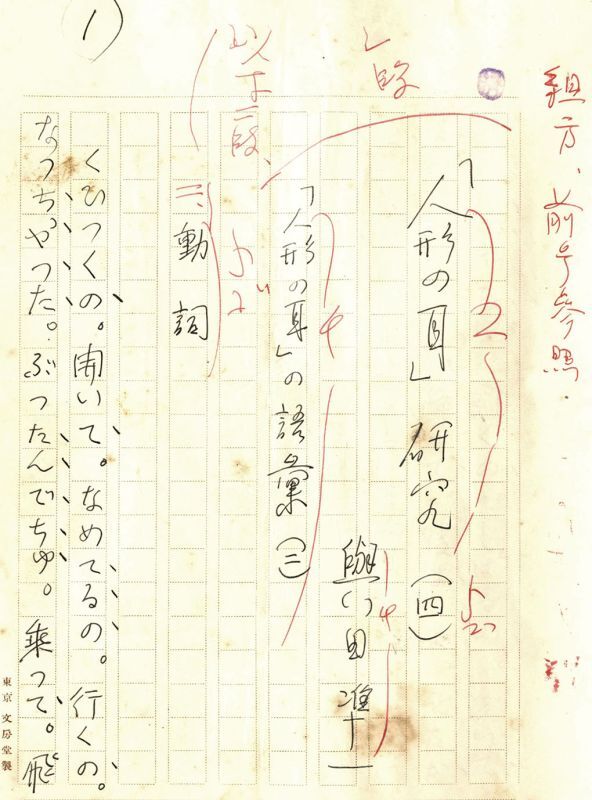 組方、前号参照
「人形の耳」研究(四)
與田準一
「人形の耳」の語彙(三)
以下二段、
三、動詞
くひつくの。開いて。なめてるの。行くの。
なつちやつた。ぶつたんでちゆ。乗つて。飛
1
東京 文房堂製